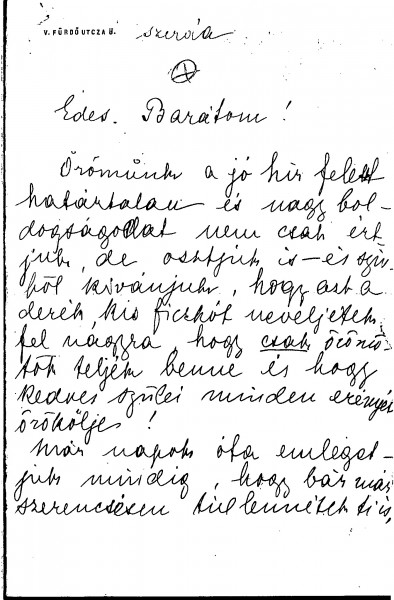 V. FÜRDŐ UTCZA 8.
szerda
1
Édes Barátom!
Örömünk a jó hír felett
határtalan és nagy bol-
dogságodat nem csak ért
jük, de osztjuk is – és szív
ből kívánjuk, hogy azt a
derék kis fickót neveljétek
fel nagyra, hogy csak örömö
tök teljék benne és hogy
kedves szülei minden erényét
örökölje!
Már napok óta emleget-
jük mindig, hogy bár már
szerencsésen túl lennétek ti is,